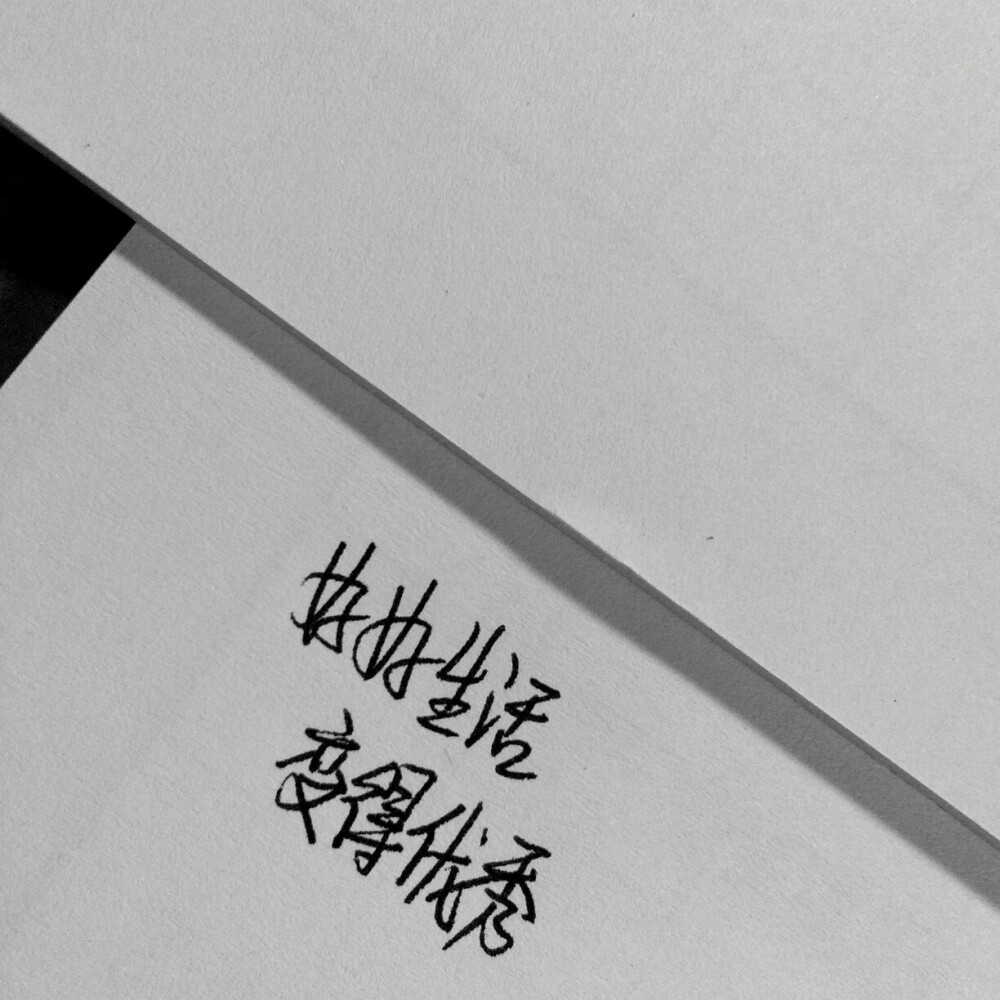 好好生活
变得优秀